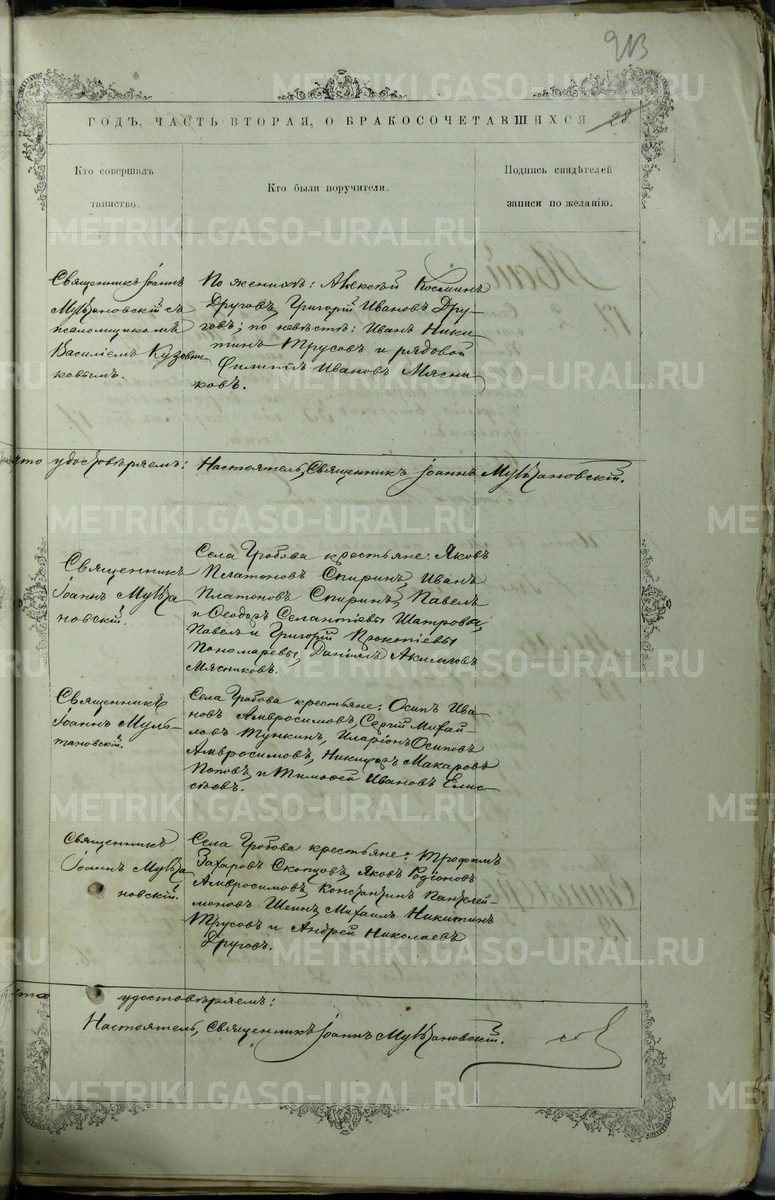 213
ГОДЪ, ЧАСТЬ ВТОРАЯ, О БРАКОСОЧЕТАВШИХСЯ. 28
Кто совершалъ
таинство.
Кто были поручители.
Подпись свидѣтелей
записи по желанію.
Священникъ Іоаннъ
Мультановскій съ
псаломщикомъ
Василіемъ
По женихѣ: Алексѣй Косминъ
Друговъ, Григорій Ивановъ Дру-
говъ; по невѣстѣ: Иванъ Ники-
тинъ Трусовъ и рядовой
Филиппъ Ивановъ Мясни
ковъ.
удостовѣряемъ: Настоятель, Священникъ Іоаннъ Мультановскій.
Священникъ
Іоаннъ Мульта
новскій.
Села Гробова крестьяне: Яковъ
Платоновъ Спиринъ, Иванъ
Платоновъ Спиринъ, Павелъ
и Ѳеодоръ Селантіевы Шатровы,
Павелъ и Григорій Прокопіевы
Пономаревы, Даніилъ Акимовъ
Мясниковъ.
Священникъ
Іоаннъ Муль-
тановскій.
Села Гробова крестьяне: Осипъ Ива-
новъ Амвросимовъ, Сергій Михай-
ловъ Тункинъ, Иларіонъ Осиповъ
Амвросимовъ, Никифоръ Макаровъ
Поповъ, и Тимоѳей Ивановъ Елис
ѣевъ.
Священникъ
Іоаннъ Мульта
новскій.
Села Гробова крестьяне: Трофимъ
Захаровъ Скопцовъ, Яковъ Родіоновъ
Амвросимовъ, Константинъ Пантелей-
моновъ Шеинъ, Михаилъ Никитинъ
Трусовъ и Андрей Николаевъ
Друговъ.
удостовѣряемъ:
Настоятель, Священникъ Іоаннъ Мультановскій.
METRIKI.GASO-URAL.RU